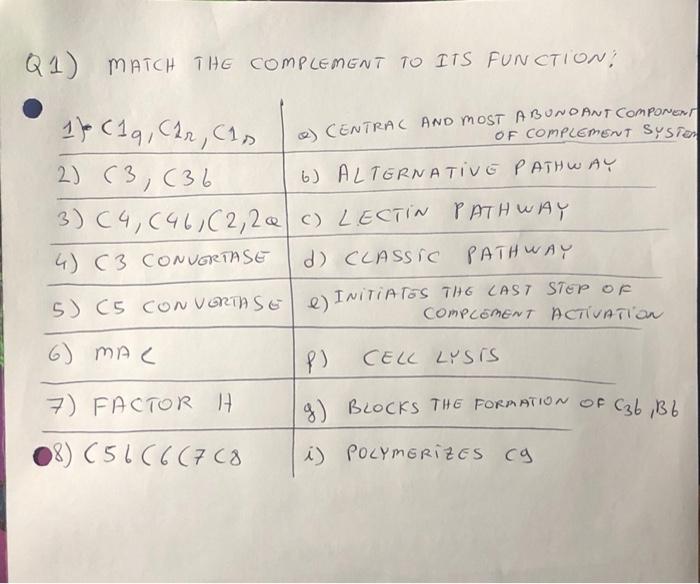 Q1) MATCH THE COMPLEMENT TO ITS FUNCTION:
1) C1q, C1r, C1s
a) CENTRAL AND MOST ABUNDANT COMPONENT
OF COMPLEMENT SYSTEM
2) C3, C3b
b) ALTERNATIVE PATHWAY
3) C4, C4b, C2, 2a
c) LECTIN PATHWAY
4) C3 CONVERTASE
d) CLASSIC PATHWAY
5) C5 CONVERTASE
e) INITIATES THE LAST STEP OF
COMPLEMENT ACTIVATION
6) MAC
f) CELL LYSIS
7) FACTOR H
g) BLOCKS THE FORMATION OF C3b, Bb
8) C5b C6 C7 C8
i) POLYMERIZES C9